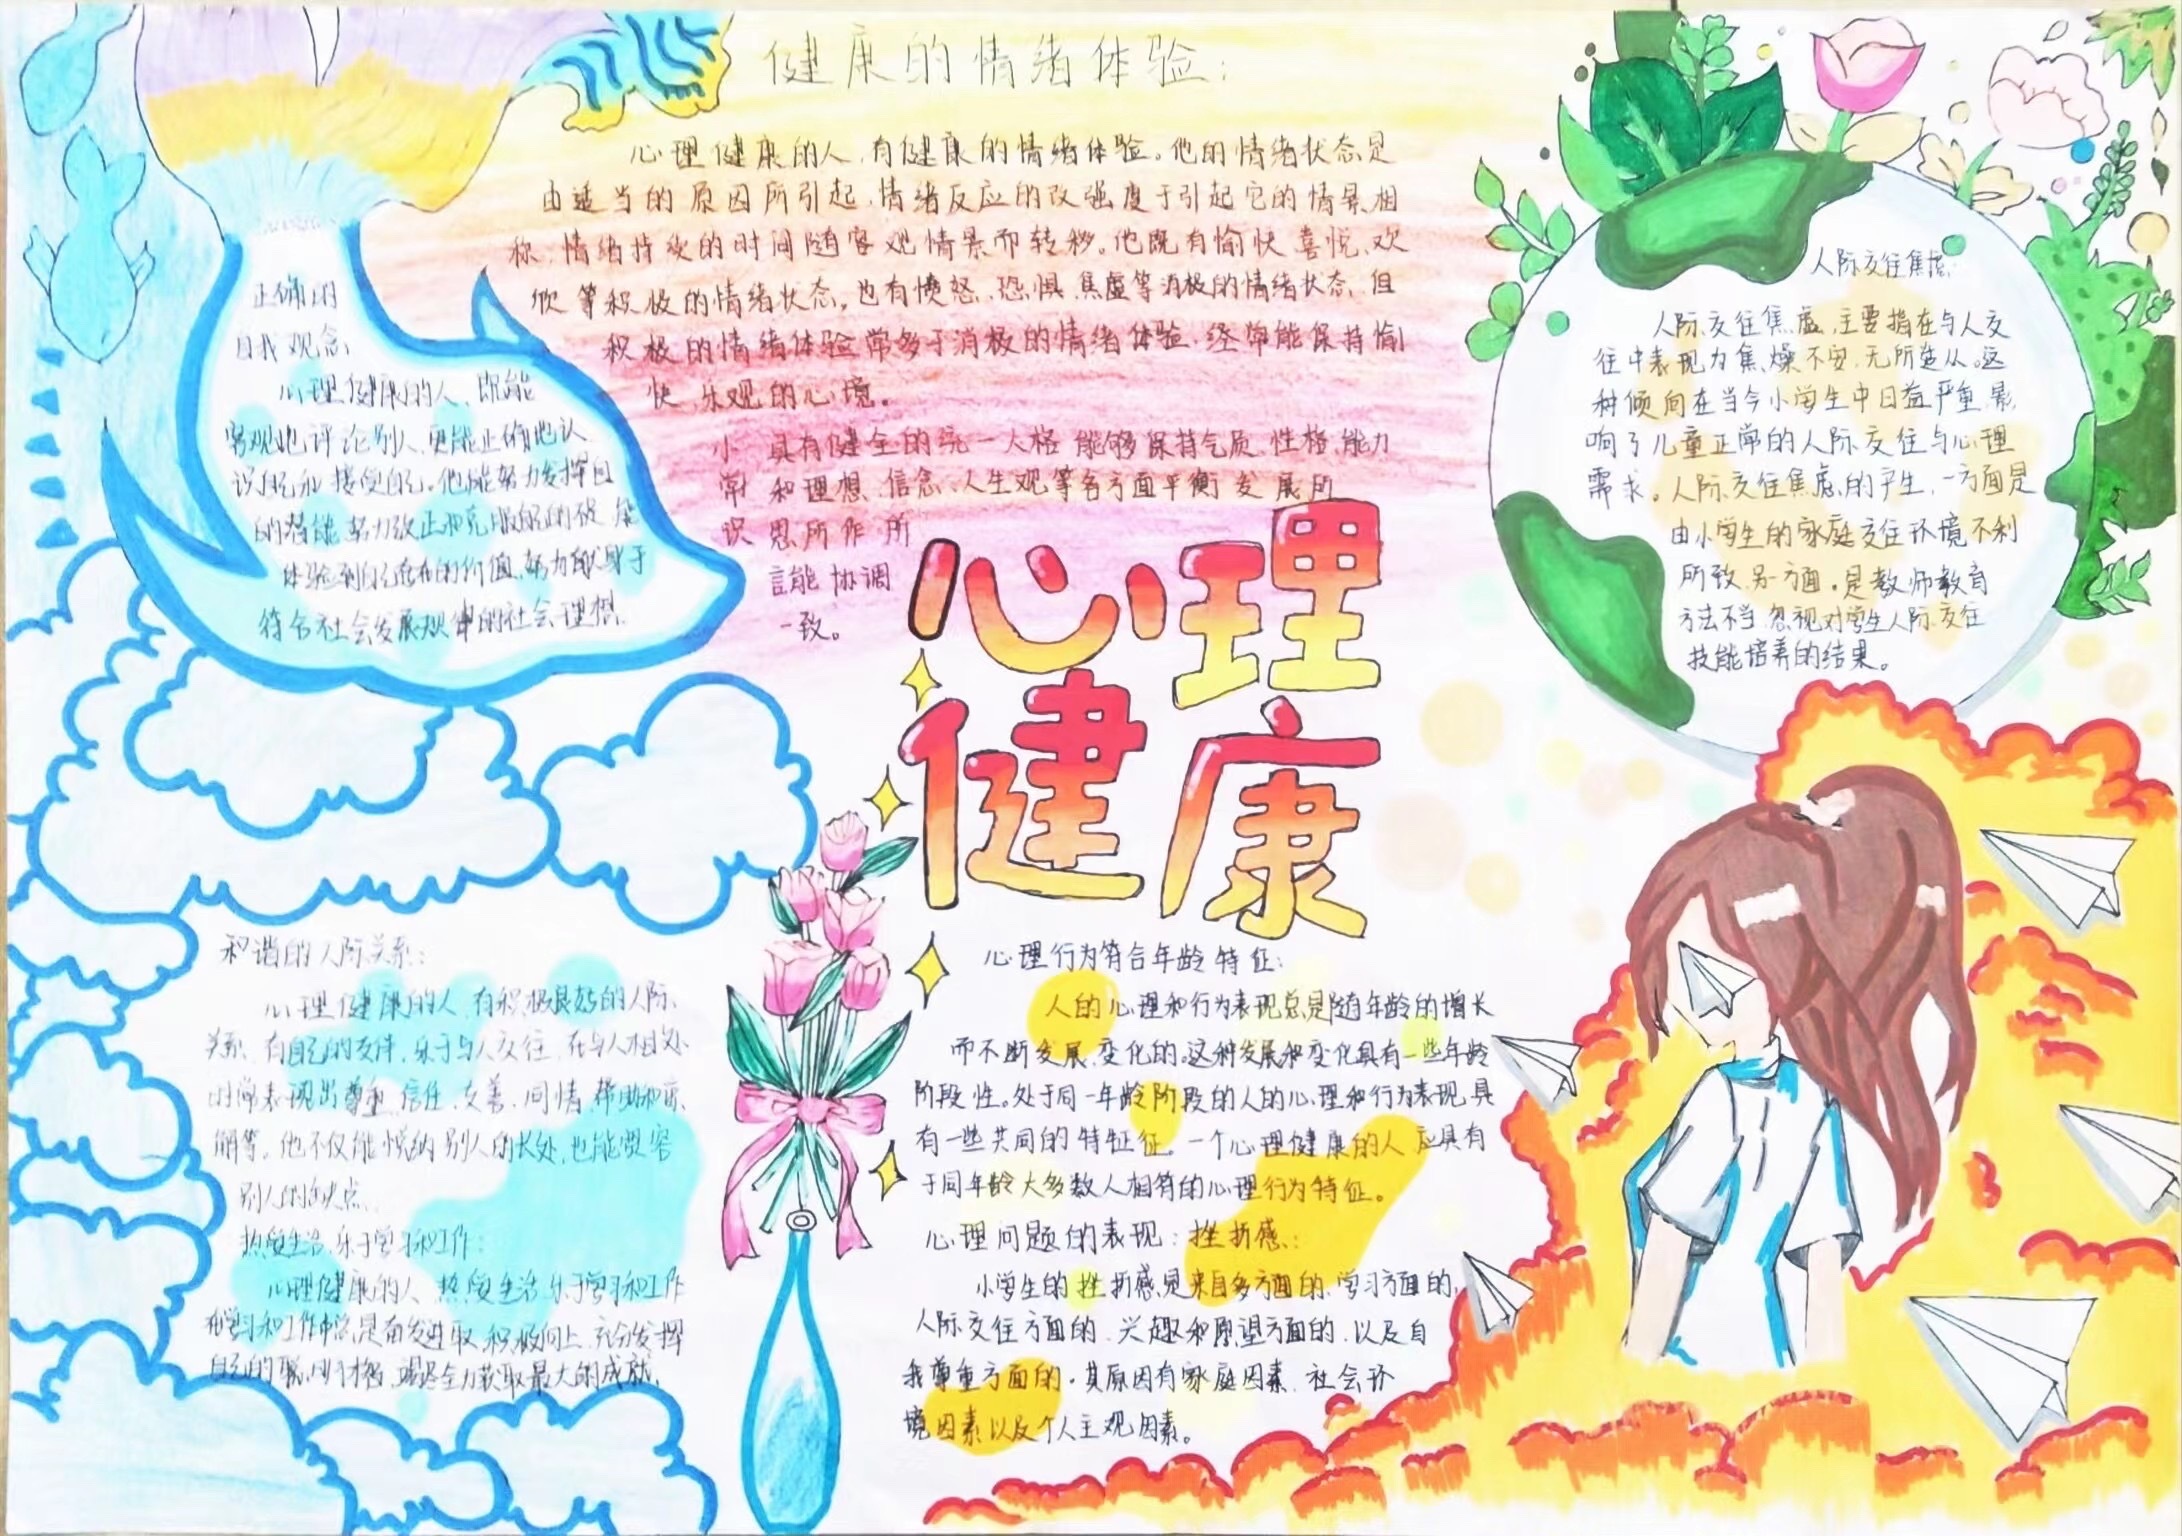 健康的情绪体验:
心理健康的人,有健康的情绪体验。他的情绪状态是
由适当的原因所引起,情绪反应的改强度于引起它的情景相
称,情绪持续的时间随客观情景而转移。他既有愉快、喜悦、欢
欣等积极的情绪状态,也有愤怒、恐惧、焦虑等消极的情绪状态,但
积极的情绪体验常多于消极的情绪体验,经常能保持愉
快、乐观的心境。
小常识
具有健全的统一人格 能够保持气质、性格、能力
和理想、信念、人生观等各方面平衡发展所
思所作所
言能协调
一致。
正确的
自我观念
心理健康的人,既能
客观地评论别人,更能正确地认
识自己和接受自己。他能努力发挥自
的潜能,努力改正和克服
体验到自己存在的价值,努力献身于
符合社会发展规律的社会理想.
心理
健康
人际交往焦虑:
人际交往焦虑,主要指在与人交
往中表现为焦燥不安,无所适从。这
种倾向在当今小学生中日益严重,影
响了儿童正常的人际交往与心理
需求。人际交往焦虑的产生,一方面是
由小学生的家庭交往环境不利
所致,另一方面。是教师教育
方法不当,忽视对学生人际交往
技能培养的结果。
和谐的人际关系:
心理健康的人,有积极良好的人际
关系,有自己的友伴,乐于与人交往,在与人相处
时常表现出尊重、信任、友善、同情、帮助和
解等。他不仅能悦纳别人的长处,也能宽容
别人的缺点.
热爱生活,乐于学习和工作:
心理健康的人、热爱生活,乐于学习和工作
在学习和工作中总是奋发进取,积极向上,充分发挥
自己的聪明才智,竭尽全力获取最大的成就.
心理行为符合年龄特征:
人的心理和行为表现总是随年龄的增长
而不断发展、变化的。这种发展和变化具有一些年龄
阶段性。处于同一年龄阶段的人的心理和行为表现具
有一些共同的特征。一个心理健康的人应具有
于同年龄大多数人相符的心理行为特征。
心理问题的表现:挫折感:
小学生的挫折感是来自多方面的,学习方面的,
人际交往方面的、兴趣和愿望方面的,以及自
我尊重方面的。其原因有家庭因素、社会环
境因素以及个人主观因素。